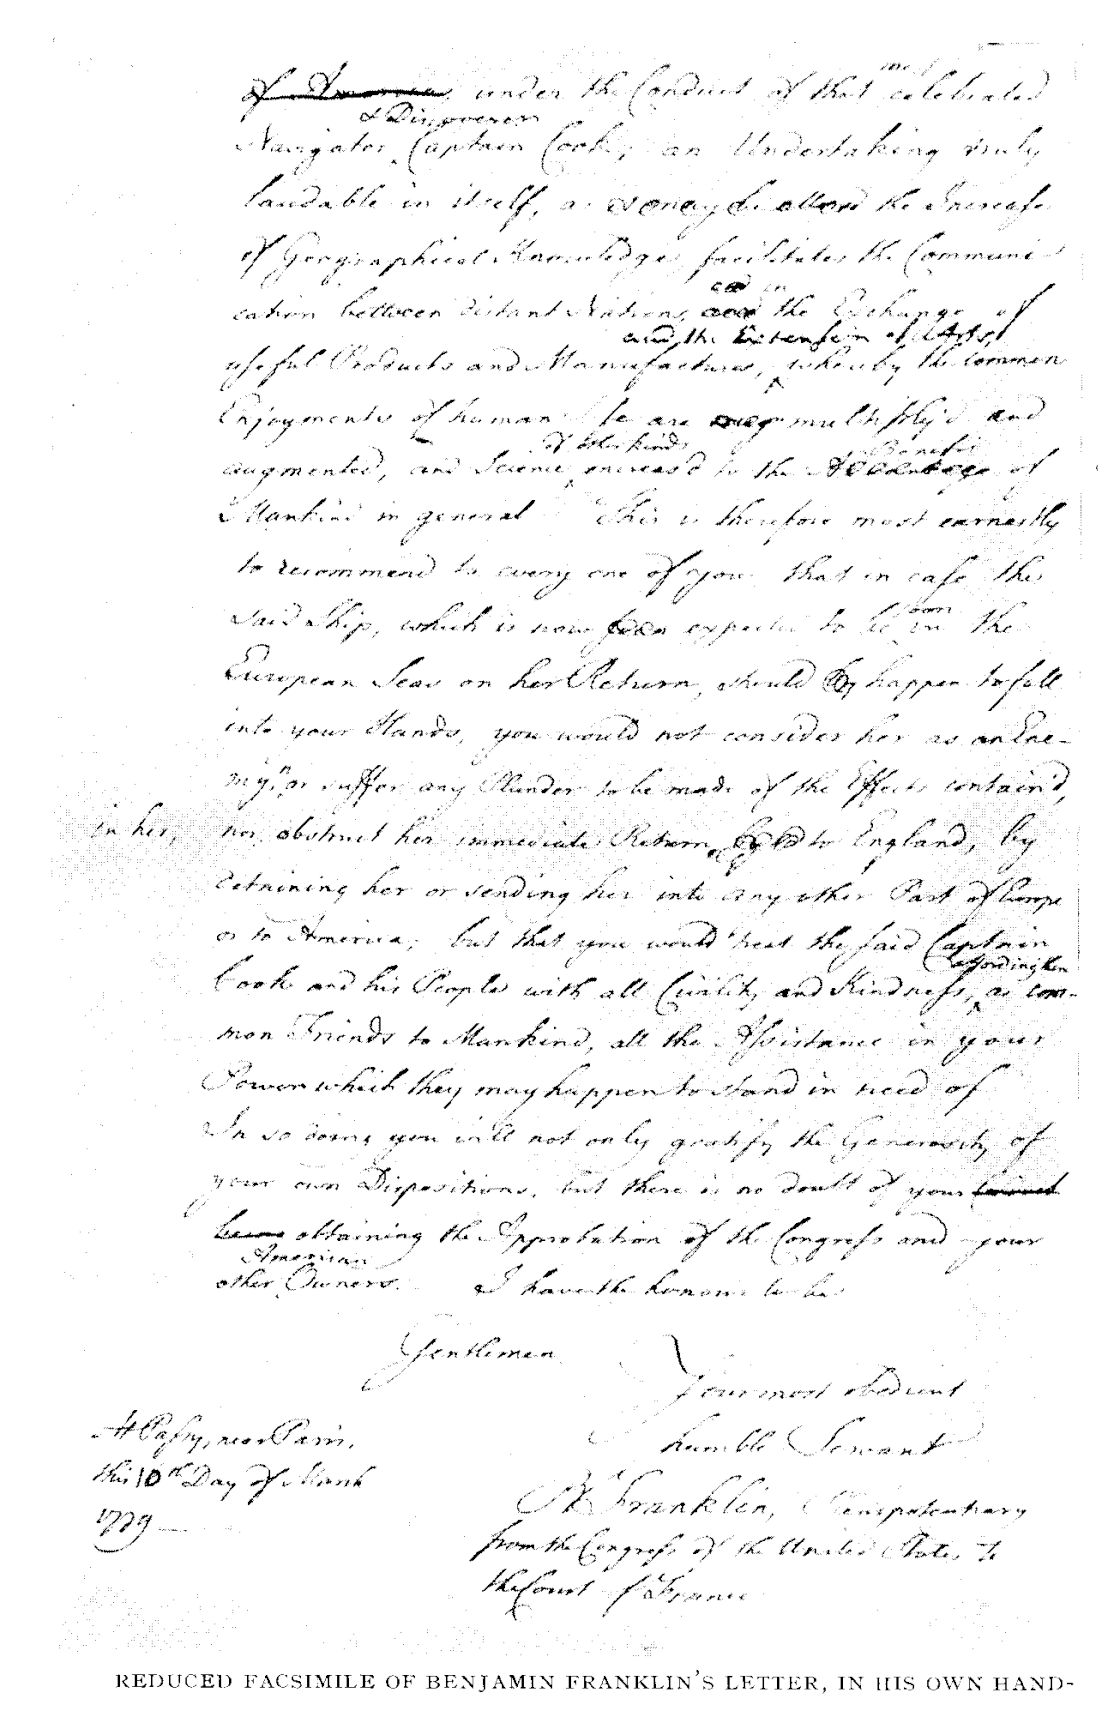 of America under the Conduct of that most celebrated
& Discoverer
Navigator Captain Cook; an Undertaking truly
laudable in itself, as the Increase
of Geographical Knowledge facilitates the Communi-
cation between distant Nations, in the Exchange of
and the Extension of Arts,
useful Products and Manufactures, whereby the common
Enjoyments of human life are multiply'd and
of other kinds
augmented, and Science encreas'd to the Benefit of
Mankind in general This is therefore most earnestly
to recommend to every one of you that in case the
said Ship, which is now expected to be soon in the
European Seas on her Return, should happen to fall
into your Hands, you would not consider her as an Ene-
my, nor suffer any Plunder to be made of the Effects contain'd
in her, nor obstruct her immediate Return to England, by
detaining her or sending her into any other Part of Europe
or to America; but that you would treat the said Captain
affording them
Cook and his People with all Civility and Kindness, as com-
mon Friends to Mankind, all the Assistance in your
Power which they may happen to stand in need of
In so doing you will not only gratify the Generosity of
your own Dispositions, but there is no doubt of your
obtaining the Approbation of the Congress and your
American
other Owners. I have the honour to be
Gentlemen
Your most obedient
humble Servant
At Passy, near Paris,
this 10th Day of March
1779
B Franklin, Plenipotentiary
from the Congress of the United States to
the Court of France
REDUCED FACSIMILE OF BENJAMIN FRANKLIN'S LETTER, IN HIS OWN HAND-